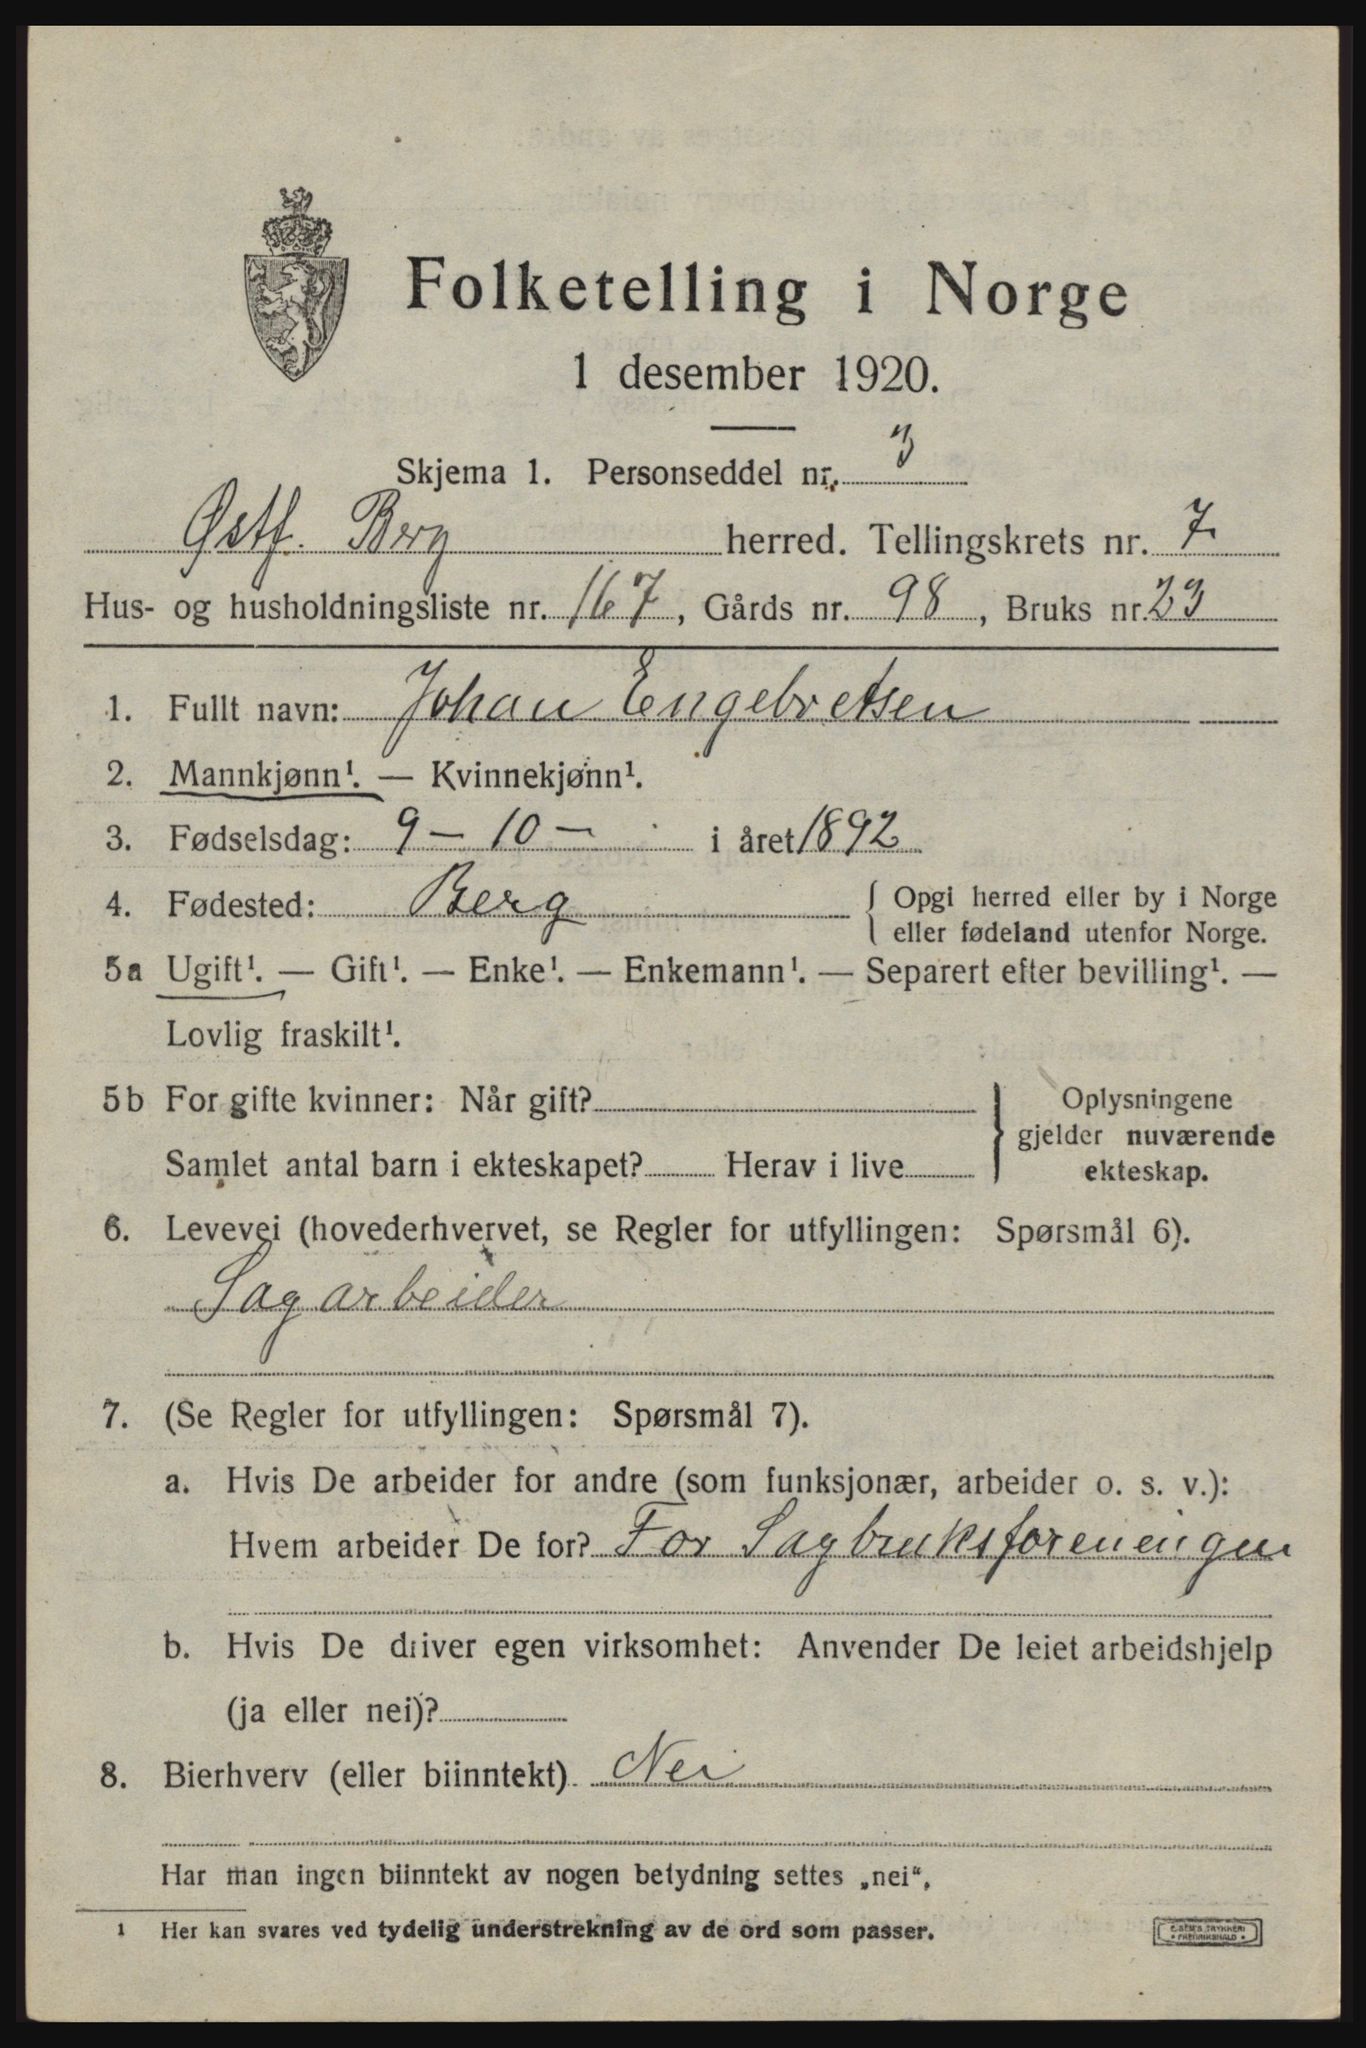 Folketelling i Norge
1 desember 1920.
Skjema 1. Personseddel nr. 3
Østf. Berg herred. Tellingskrets nr. 7
Hus- og husholdningsliste nr. 167, Gårds nr. 98, Bruks nr. 23
1. Fullt navn: Johan Engebretsen
2. Mannkjønn¹. — Kvinnekjønn¹.
3. Fødselsdag: 9 – 10 – i året 1892
4. Fødested: Berg { Opgi herred eller by i Norge
eller fødeland utenfor Norge.
5a Ugift¹. — Gift¹. — Enke¹. — Enkemann¹. — Separert efter bevilling¹. —
Lovlig fraskilt¹.
5b For gifte kvinner: Når gift?
Samlet antal barn i ekteskapet? Herav i live
} Oplysningene
gjelder nuværende
ekteskap.
6. Levevei (hovederhvervet, se Regler for utfyllingen: Spørsmål 6).
Sagarbeider
7. (Se Regler for utfyllingen: Spørsmål 7).
a. Hvis De arbeider for andre (som funksjonær, arbeider o. s. v.):
Hvem arbeider De for? For Sagbruksforeneingen
b. Hvis De driver egen virksomhet: Anvender De leiet arbeidshjelp
(ja eller nei)?
8. Bierhverv (eller biinntekt) Nei
Har man ingen biinntekt av nogen betydning settes „nei“.
1 Her kan svares ved tydelig understrekning av de ord som passer.
E. SEM'S TRYKKERI
• FREDRIKSHALD •